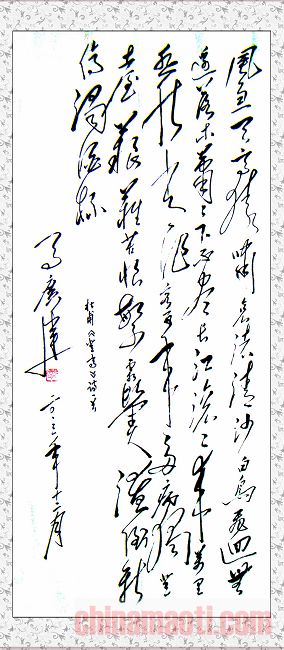 風急天高猿嘯哀渚清沙白鳥飛迴無
邊落木蕭々下不盡長江滾々來萬里
悲秋常作客百年多病獨登
臺艱難苦恨繁霜鬢潦倒新
停濁酒杯
杜甫登高詩一首
年十二月
chinamaoti.com